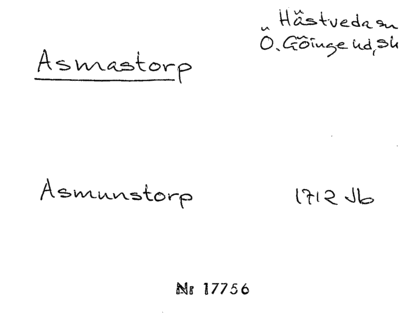 Hästveda sn
Asmastorp Ö. Göinge hd, Sk
Asmunstorp 1712 Jb
Nr 17756